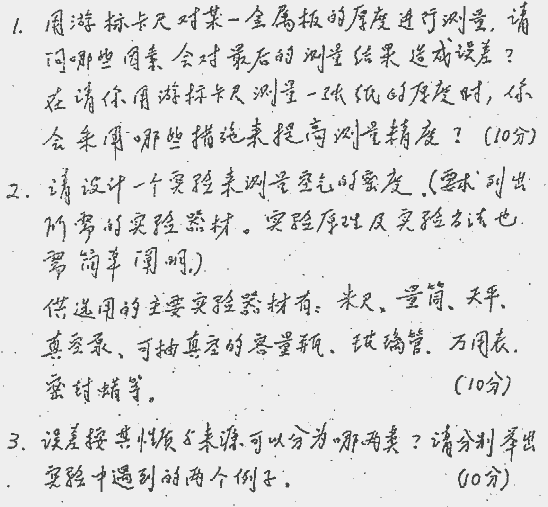 1. 用游标卡尺对某一金属板的厚度进行测量, 请
问哪些因素会对最后的测量结果造成误差?
在请你用游标卡尺测量一张纸的厚度时, 你
会采用哪些措施来提高测量精度? (10分)
2. 请设计一个实验来测量空气的密度. (要求列出
所需的实验器材。实验原理及实验方法也
需简单阐明.)
供选用的主要实验器材有: 米尺、量筒、天平、
真空泵、可抽真空的容量瓶、玻璃管. 万用表.
密封蜡等。 (10分)
3. 误差按其性质与来源可以分为哪两类? 请分别举出
实验中遇到的两个例子. (10分)